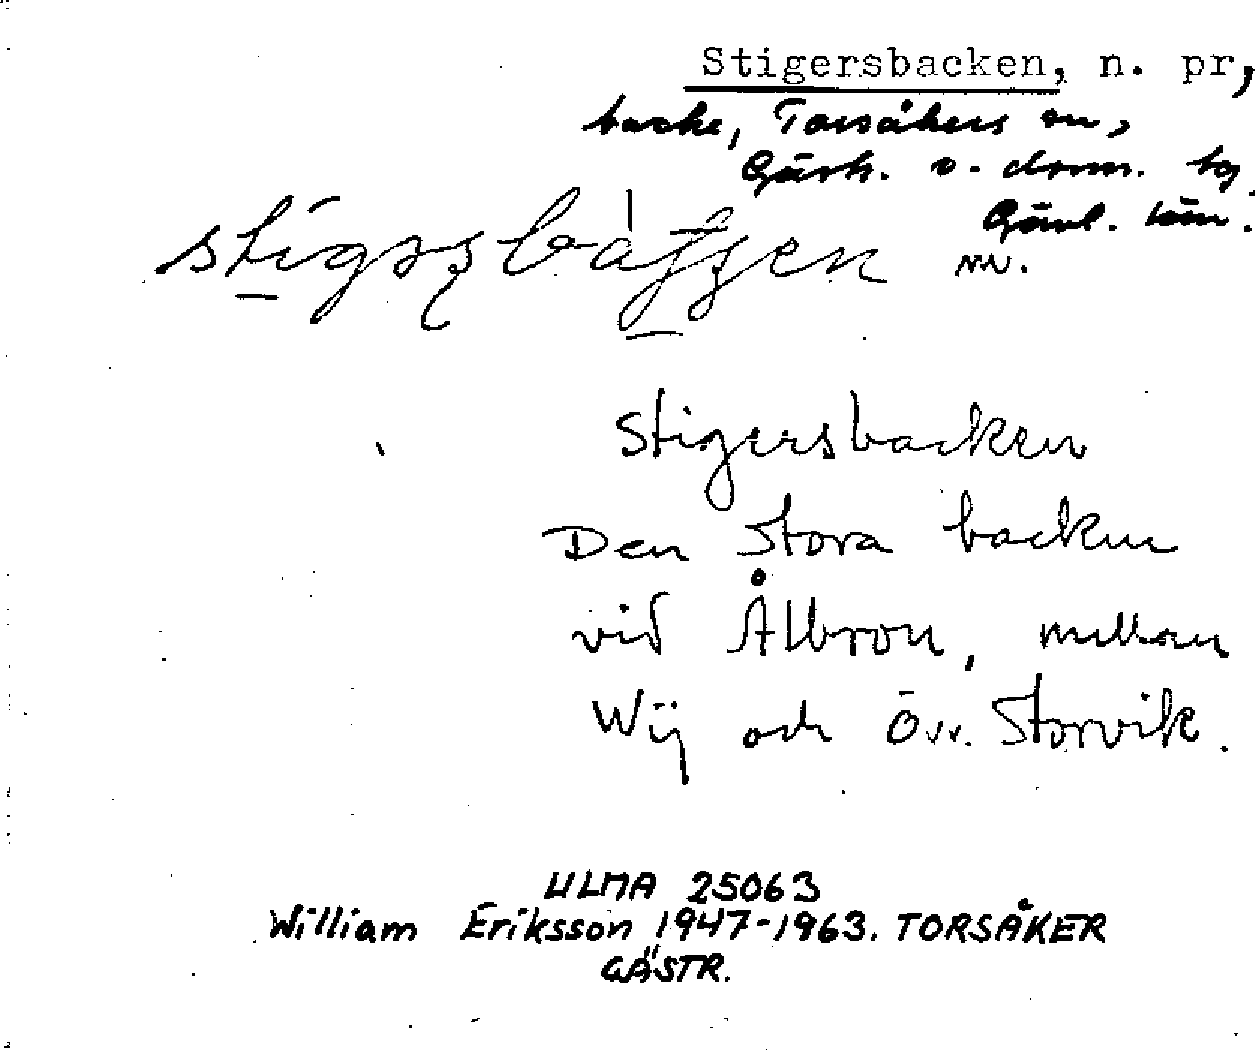 Stigersbacken, n. pr,
backe, Torsåkers sn,
Gästr. ö. dom. sg.
Gävl. län.
nv.
Stigersbacken
Den stora backen
vid Ålbron, mellan
Wij och Öv. Storvik.
ULMA 25063
William Eriksson 1947-1963. TORSÅKER
GÄSTR.